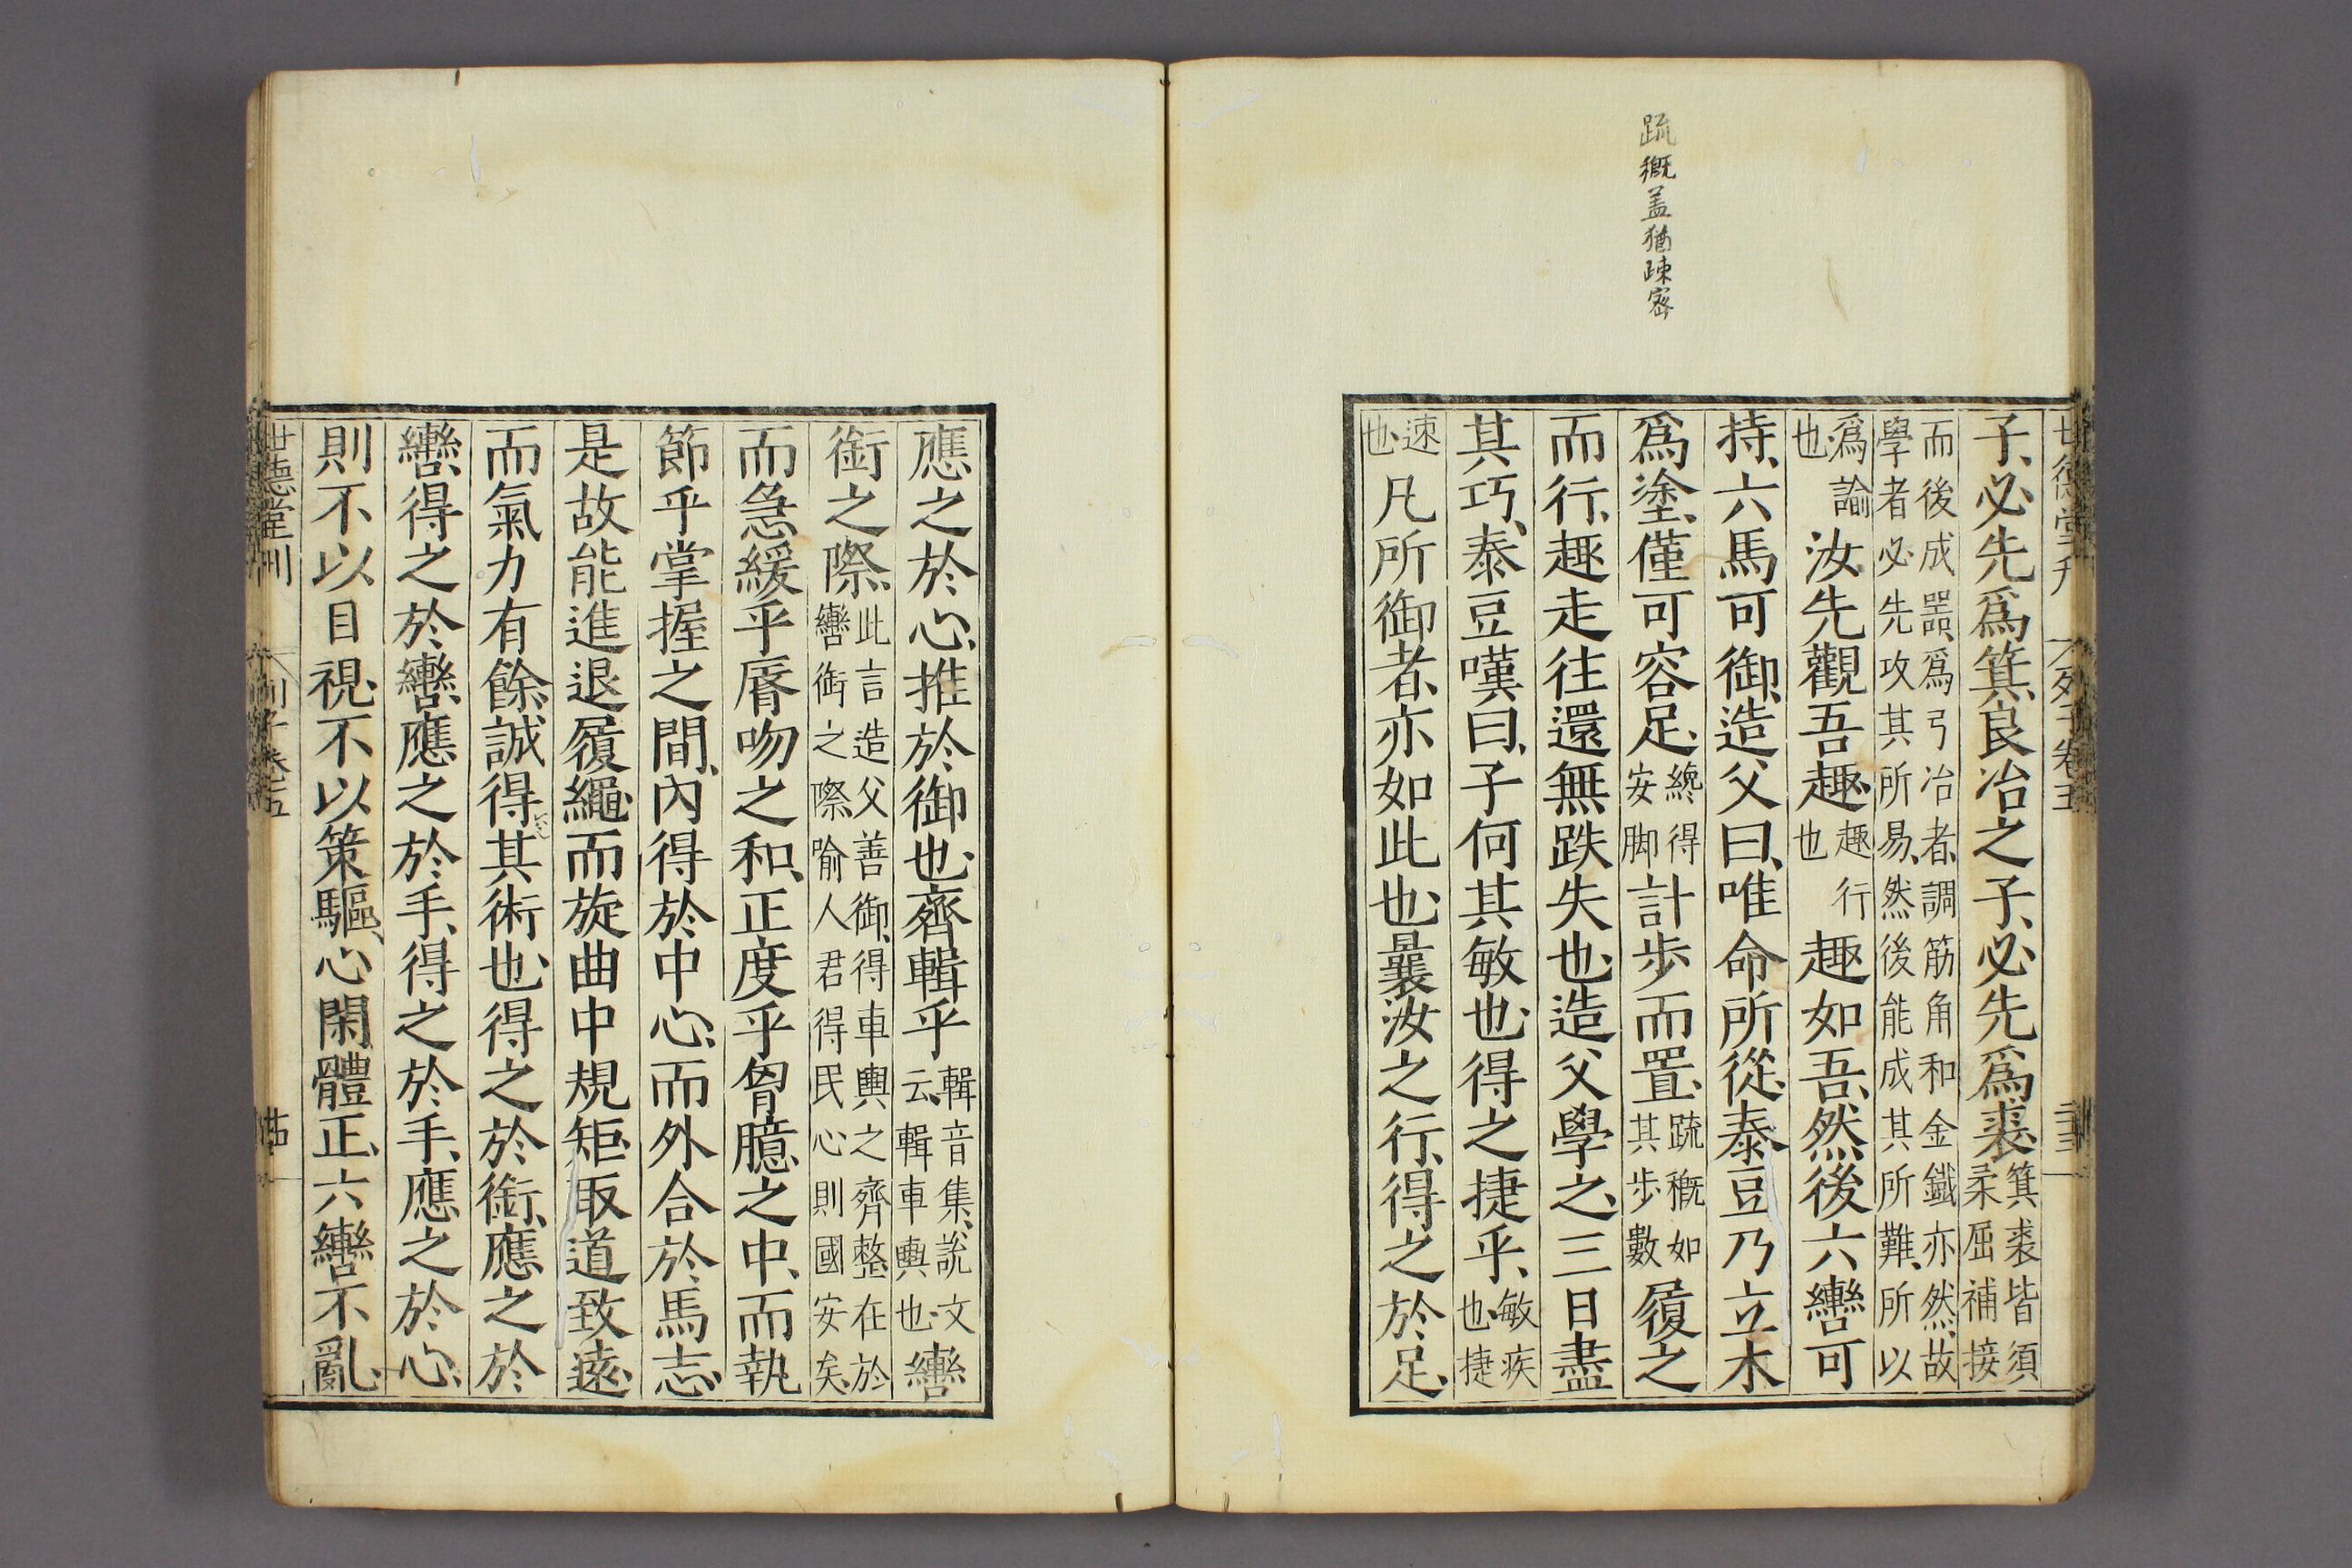 疏穊盖猶疎密
世德堂刊 列子卷五
子必先爲箕良冶之子必先爲裘箕裘皆須柔屈補接
而後成噐爲弓冶者調筋角和金鐵亦然故學者必先攻其所易然後能成其所難所以
爲諭也汝先觀吾趣趣行也趣如吾然後六轡可
持六馬可御造父曰唯命所從泰豆乃立木
爲塗僅可容足纔得安脚計步而置疏穊如其步數履之
而行趣走往還無跌失也造父學之三日盡
其巧泰豆嘆曰子何其敏也得之捷乎敏疾也捷
速也凡所御者亦如此也曩汝之行得之於足
應之於心推於御也齊輯乎輯音集說文云輯車輿也轡
銜之際此言造父善御得車輿之齊整在於轡銜之際喻人君得民心則國安矣
而急緩乎脣吻之和正度乎胷臆之中而執
節乎掌握之間內得於中心而外合於馬志
是故能進退履繩而旋曲中規矩取道致遠
而氣力有餘誠得其術也得之於銜應之於
轡得之於轡應之於手得之於手應之於心
則不以目視不以策驅心閑體正六轡不亂
世德堂刊 列子卷五